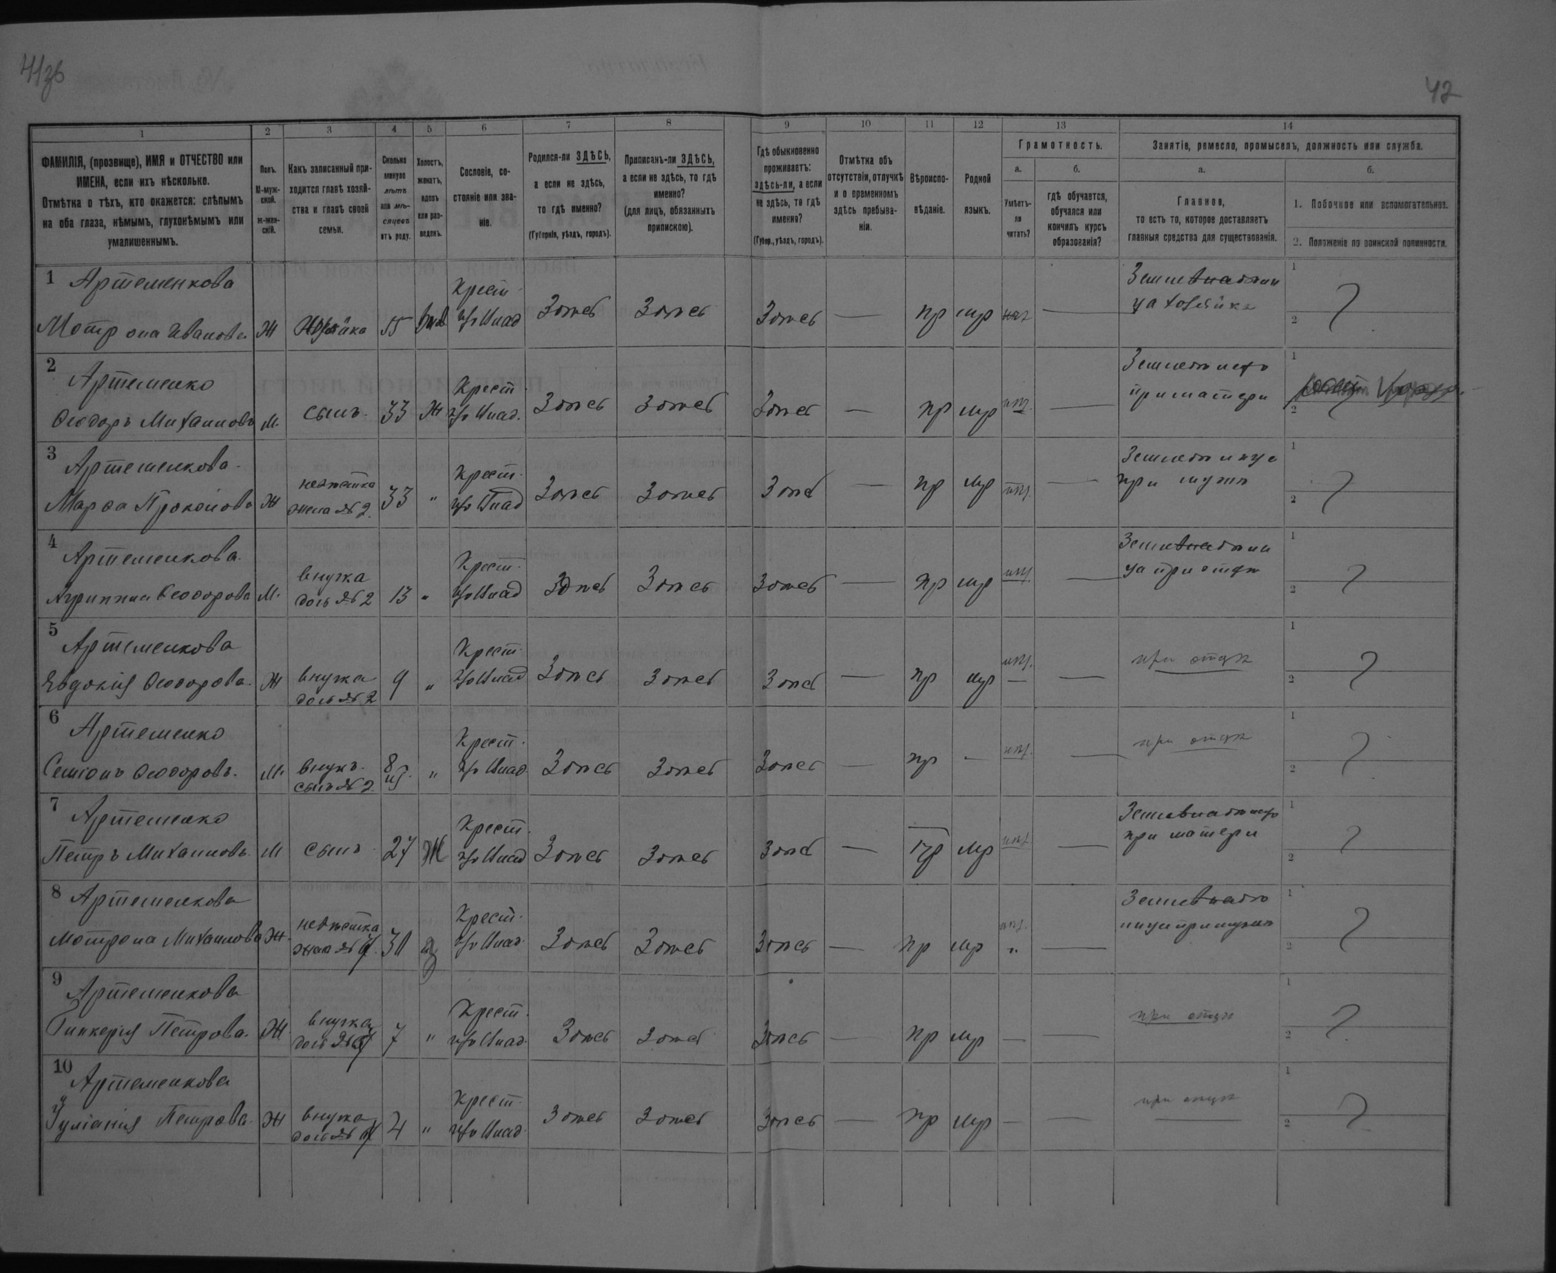 42
1 2 3 4 5 6 7 8 9 10 11 12 13 14
ФАМИЛІЯ, (прозвище), ИМЯ и ОТЧЕСТВО или
ИМЕНА, если ихъ нѣсколько.
Отмѣтка о тѣхъ, кто окажется: слѣпымъ
на оба глаза, нѣмымъ, глухонѣмымъ или
умалишеннымъ.
Полъ.
М-муж-
ской.
Ж-жен-
скій.
Какъ записанный при-
ходится главѣ хозяй-
ства и главѣ своей
семьи.
Сколько
минуло
лѣтъ
или мѣ-
сяцевъ
отъ роду.
Холостъ,
женатъ,
вдовъ
или раз-
веденъ.
Сословіе, со-
стояніе или зва-
ніе.
Родился-ли ЗДѢСЬ,
а если не здѣсь,
то гдѣ именно?
(Губернія, уѣздъ, городъ).
Приписанъ-ли ЗДѢСЬ,
а если не здѣсь, то гдѣ
именно?
(для лицъ, обязанныхъ
припискою).
Гдѣ обыкновенно
проживаетъ:
здѣсь-ли, а если
не здѣсь, то гдѣ
именно?
(Губер., уѣздъ, городъ).
Отмѣтка объ
отсутствіи, отлучкѣ
и о временномъ
здѣсь пребыва-
ніи.
Вѣроиспо-
вѣданіе.
Родной
языкъ.
Грамотность.
а.
Умѣетъ-
ли
читать?
б.
гдѣ обучается,
обучался или
кончилъ курсъ
образованія?
Занятіе, ремесло, промыселъ, должность или служба.
а.
Главное,
то есть то, которое доставляетъ
главныя средства для существованія.
б.
1. Побочное или вспомогательное.
2. Положеніе по воинской повинности.
1 Артеменкова
Мотрона Иванова Ж хозяйка 55 вд Крест. Здѣсь Здѣсь Здѣсь — пр мр нѣт —
2 Артеменко
Ѳеодоръ Михаиловъ М. сынъ 33 Ж Крест Здѣсь Здѣсь Здѣсь — пр мр — при матери
3 Артеменкова
Марѳа Прокопова Ж невѣстка жена № 2 33 " Крест. Здѣсь Здѣсь Здѣсь — пр мр — при мужѣ
4 Артеменкова
Агрипина Ѳеодорова М. внучка дочь № 2 13 " Крест. Здѣсь Здѣсь Здѣсь — пр мр — при отцѣ
5 Артеменкова
Евдокія Ѳеодорова Ж внучка дочь № 2 9 " Крест. Здѣсь Здѣсь Здѣсь — пр мр — при отцѣ
6 Артеменко
Семіонъ Ѳеодоровъ. М. внукъ сынъ № 2 8 " Крест. Здѣсь Здѣсь Здѣсь — пр — — при отцѣ
7 Артеменко
Петръ Михаиловъ М сынъ 27 Ж Крест. Здѣсь Здѣсь Здѣсь — пр мр — при матери
8 Артеменкова
Мотрона Михаилова Ж. невѣстка жена № 7 30 Крест. Здѣсь Здѣсь Здѣсь — пр мр " —
9 Артеменкова
Гликерія Петрова Ж внучка дочь № 7 7 " Крест. Здѣсь Здѣсь Здѣсь — пр мр — — при отцѣ
10 Артеменкова
Іуліанія Петрова Ж внучка дочь № 7 4 " Крест Здѣсь Здѣсь Здѣсь — пр мр — — при отцѣ